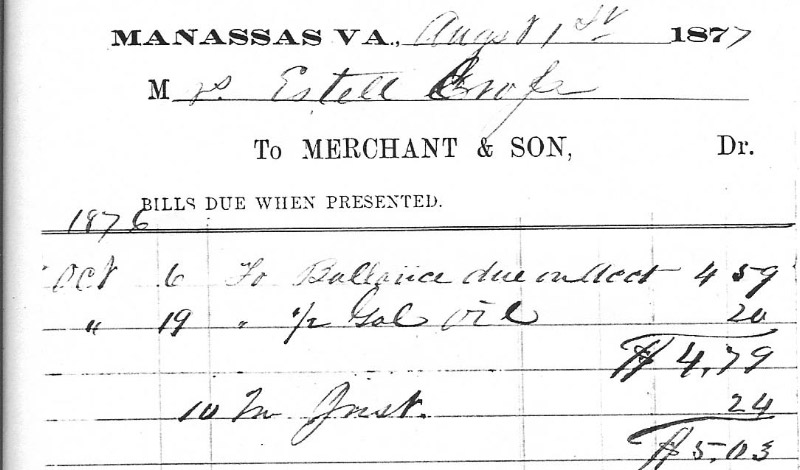 MANASSAS VA., August 1st 1877
Mrs. Estell
To MERCHANT & SON, Dr.
BILLS DUE WHEN PRESENTED.
1876
Oct 6 To Ballance due on Acct 4 59
" 19 " 1/2 Gal Oil 20
$ 4.79
10 Mo Inst. 24
$ 5.03